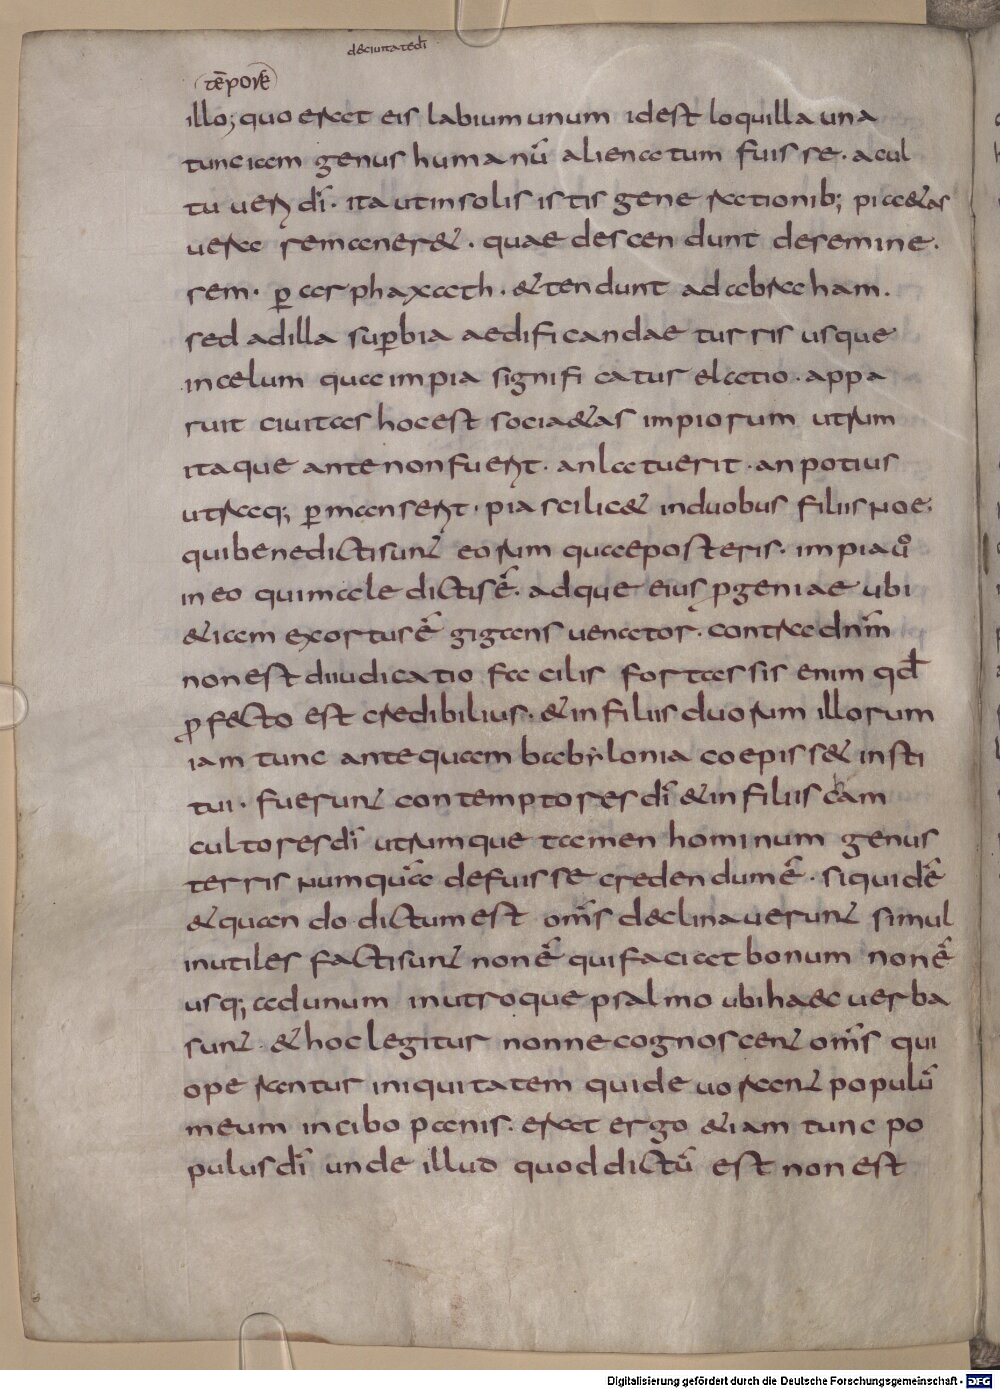 deciuitatedī
tēpore
illo; quo erat eis labium unum idest loquilla una
tunc iam genus humanū alienatum fuisse. a cul
tu ueri dī. ita ut in solis istis generationib; pietas
uera remaneret. quae descendunt de semine.
sem. p̱ arphaxath. & tendunt ad abraham.
sed ad illa sup̱bia aedificandae turris usque
in celum qua impia significatur elatio. appa
ruit ciuitas hoc est societas impiorum utrum
itaque ante non fuerit. an latuerit. an potius
utraq; p̱manserit. pia scilicet in duobus filiis noe.
qui benedicti sunt eorum quae posteris. impia uō
in eo qui maledictis ē. adque eius ꝓgeniae ubi
etiam exortus ē gigans uenator. contra dnm̄
non est diiudicatio facilis fortassis enim qđ
ꝓfecto est credibilius. & in filiis duorum illorum
iam tunc antequam babylonia coepisset insti
tui. fuerunt contemptores dī & in filiis cham
cultores dī utrumque tamen hominum genus
terris numquā defuisse credendum ē. siquidē
& quando dictum est om̄s declinauerunt simul
inutiles facti sunt non ē qui faciat bonum non ē
usq; ad unum in utroque psalmo ubi haec uerba
sunt. & hoc legitur nonne cognoscent om̄s qui
operantur iniquitatem qui deuorant populū
meum in cibo panis. erat ergo etiam tunc po
pulus dī unde illud quod dictū est non est
Digitalisierung gefördert durch die Deutsche Forschungsgemeinschaft - DFG